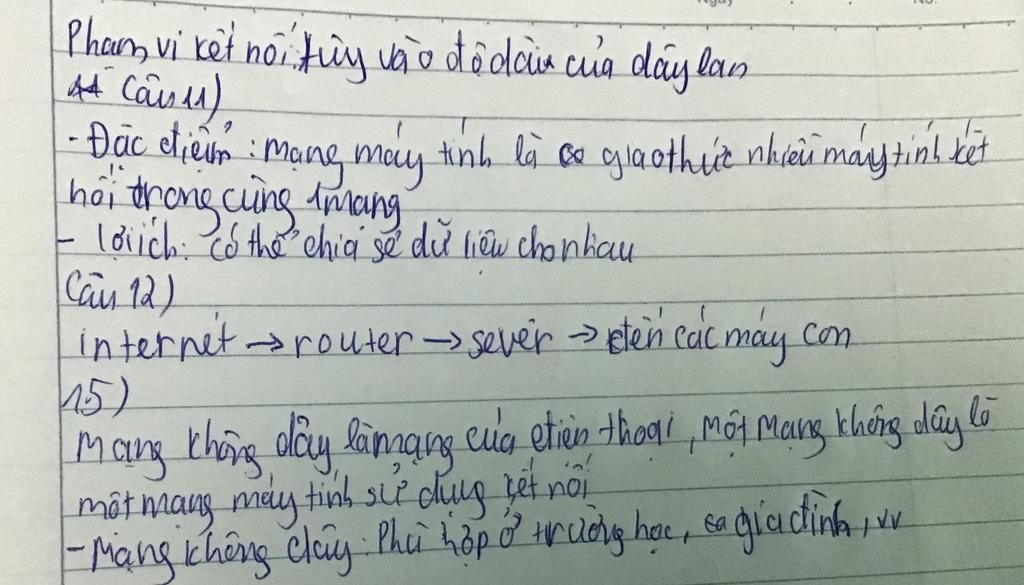 Phạm vi kết nối: tùy vào độ dài của dây lan
Câu 11)
- Đặc điểm: mạng máy tính là giao thức nhiều máy tính kết
nối trong cùng 1 mạng
- lợi ích: có thể chia sẻ dữ liệu cho nhau
Câu 12)
internet → router → sever → đến các máy con
15)
Mạng không dây là mạng của điện thoại, một mạng không dây là
một mạng máy tính sử dụng kết nối
- Mạng không dây: Phù hợp ở trường học, gia đình, vv